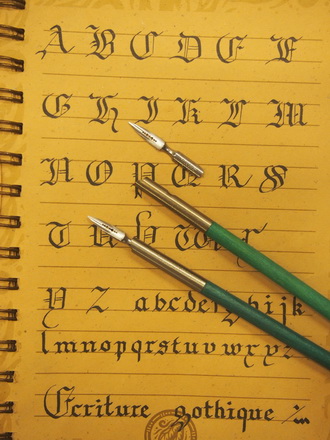 A B C D E F
G H I K L M
N O P Q R S
T U V W X
Y Z abcdefghijk
lmnopqrstuvwxyz
Écriture gothique